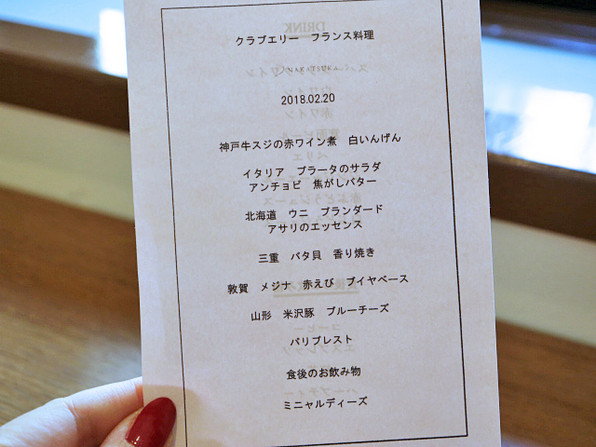 クラブエリー　フランス料理
2018.02.20
神戸牛スジの赤ワイン煮　白いんげん
イタリア　ブラータのサラダ
アンチョビ　焦がしバター
北海道　ウニ　ブランダード
アサリのエッセンス
三重　バタ貝　香り焼き
敦賀　メジナ　赤えび　ブイヤベース
山形　米沢豚　ブルーチーズ
パリブレスト
食後のお飲み物
ミニャルディーズ